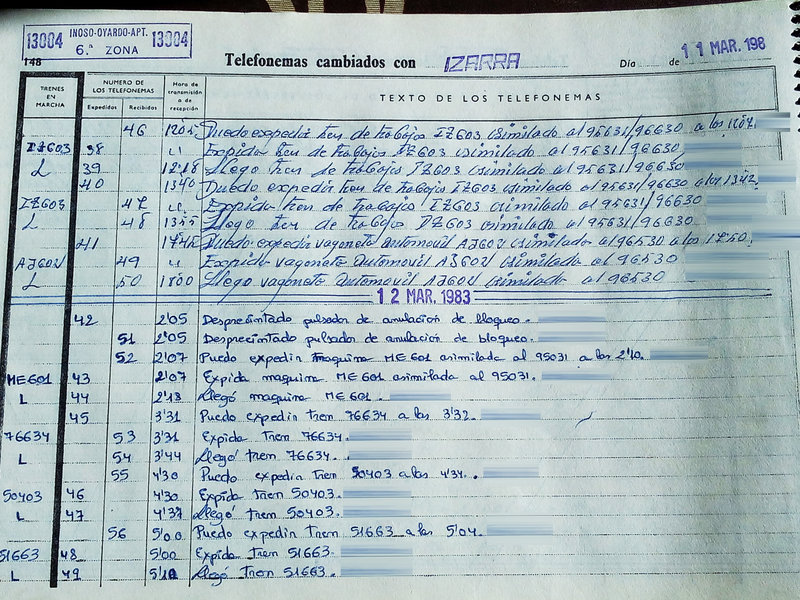 13004 INOSO-OYARDO-APT. 13004
6.ª ZONA
148
Telefonemas cambiados con IZARRA Día de 11 MAR. 198
TRENES EN MARCHA NUMERO DE LOS TELEFONEMAS Expedidos Recibidos Hora de transmisión o de recepción TEXTO DE LOS TELEFONEMAS
46 Puedo expedir tren de trabajos IZ603 asimilado al 95631/96630 a las 1207.
IZ603 38 " Expida tren de trabajos IZ603 asimilado al 95631/96630
L 39 1218 Llego tren de trabajos IZ603 asimilado al 95631/96630
40 1340 Puedo expedir tren de trabajos IZ603 asimilado al 95631/96630 a las 1342.
IZ603 47 " Expida tren de trabajos IZ603 asimilado al 95631/96630
L 48 1355 Llego tren de trabajos IZ603 asimilado al 95631/96630
41 1745 Puedo expedir vagoneta automovil AJ602 asimilada al 96530 a las 1750.
AJ602 49 " Expida vagoneta automovil AJ602 asimilada al 96530
L 50 1800 Llego vagoneta automovil AJ602 asimilada al 96530
12 MAR. 1983
42 2'05 Desprecintado pulsador de anulación de bloqueo.
51 2'05 Desprecintado pulsador de anulación de bloqueo.
52 2'07 Puedo expedir maquina ME601 asimilada al 95031 a las 2'10.
ME601 43 2'07 Expida maquina ME601 asimilada al 95031.
L 44 2'18 Llegó maquina ME601.
45 3'31 Puedo expedir tren 76634 a las 3'32.
76634 53 3'31 Expida tren 76634.
L 54 3'44 Llegó tren 76634.
55 4'30 Puedo expedir tren 50403 a las 4'34.
50403 46 4'30 Expida tren 50403.
L 47 4'37 Llegó tren 50403.
56 5'00 Puedo expedir tren 51663 a las 5'04.
51663 48 5'00 Expida tren 51663.
L 49 5'10 Llegó tren 51663.